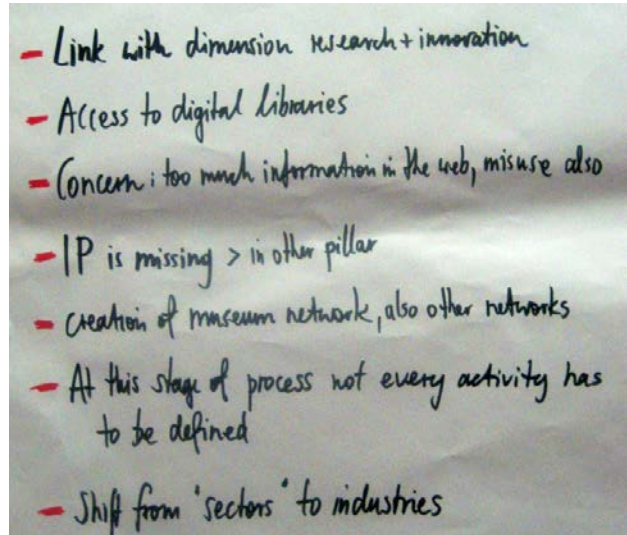 - Link with dimension research + innovation
- Access to digital libraries
- Concern: too much information in the web, misuse also
- IP is missing > in other pillar
- creation of museum network, also other networks
- At this stage of process not every activity has
to be defined
- Shift from "sectors" to industries